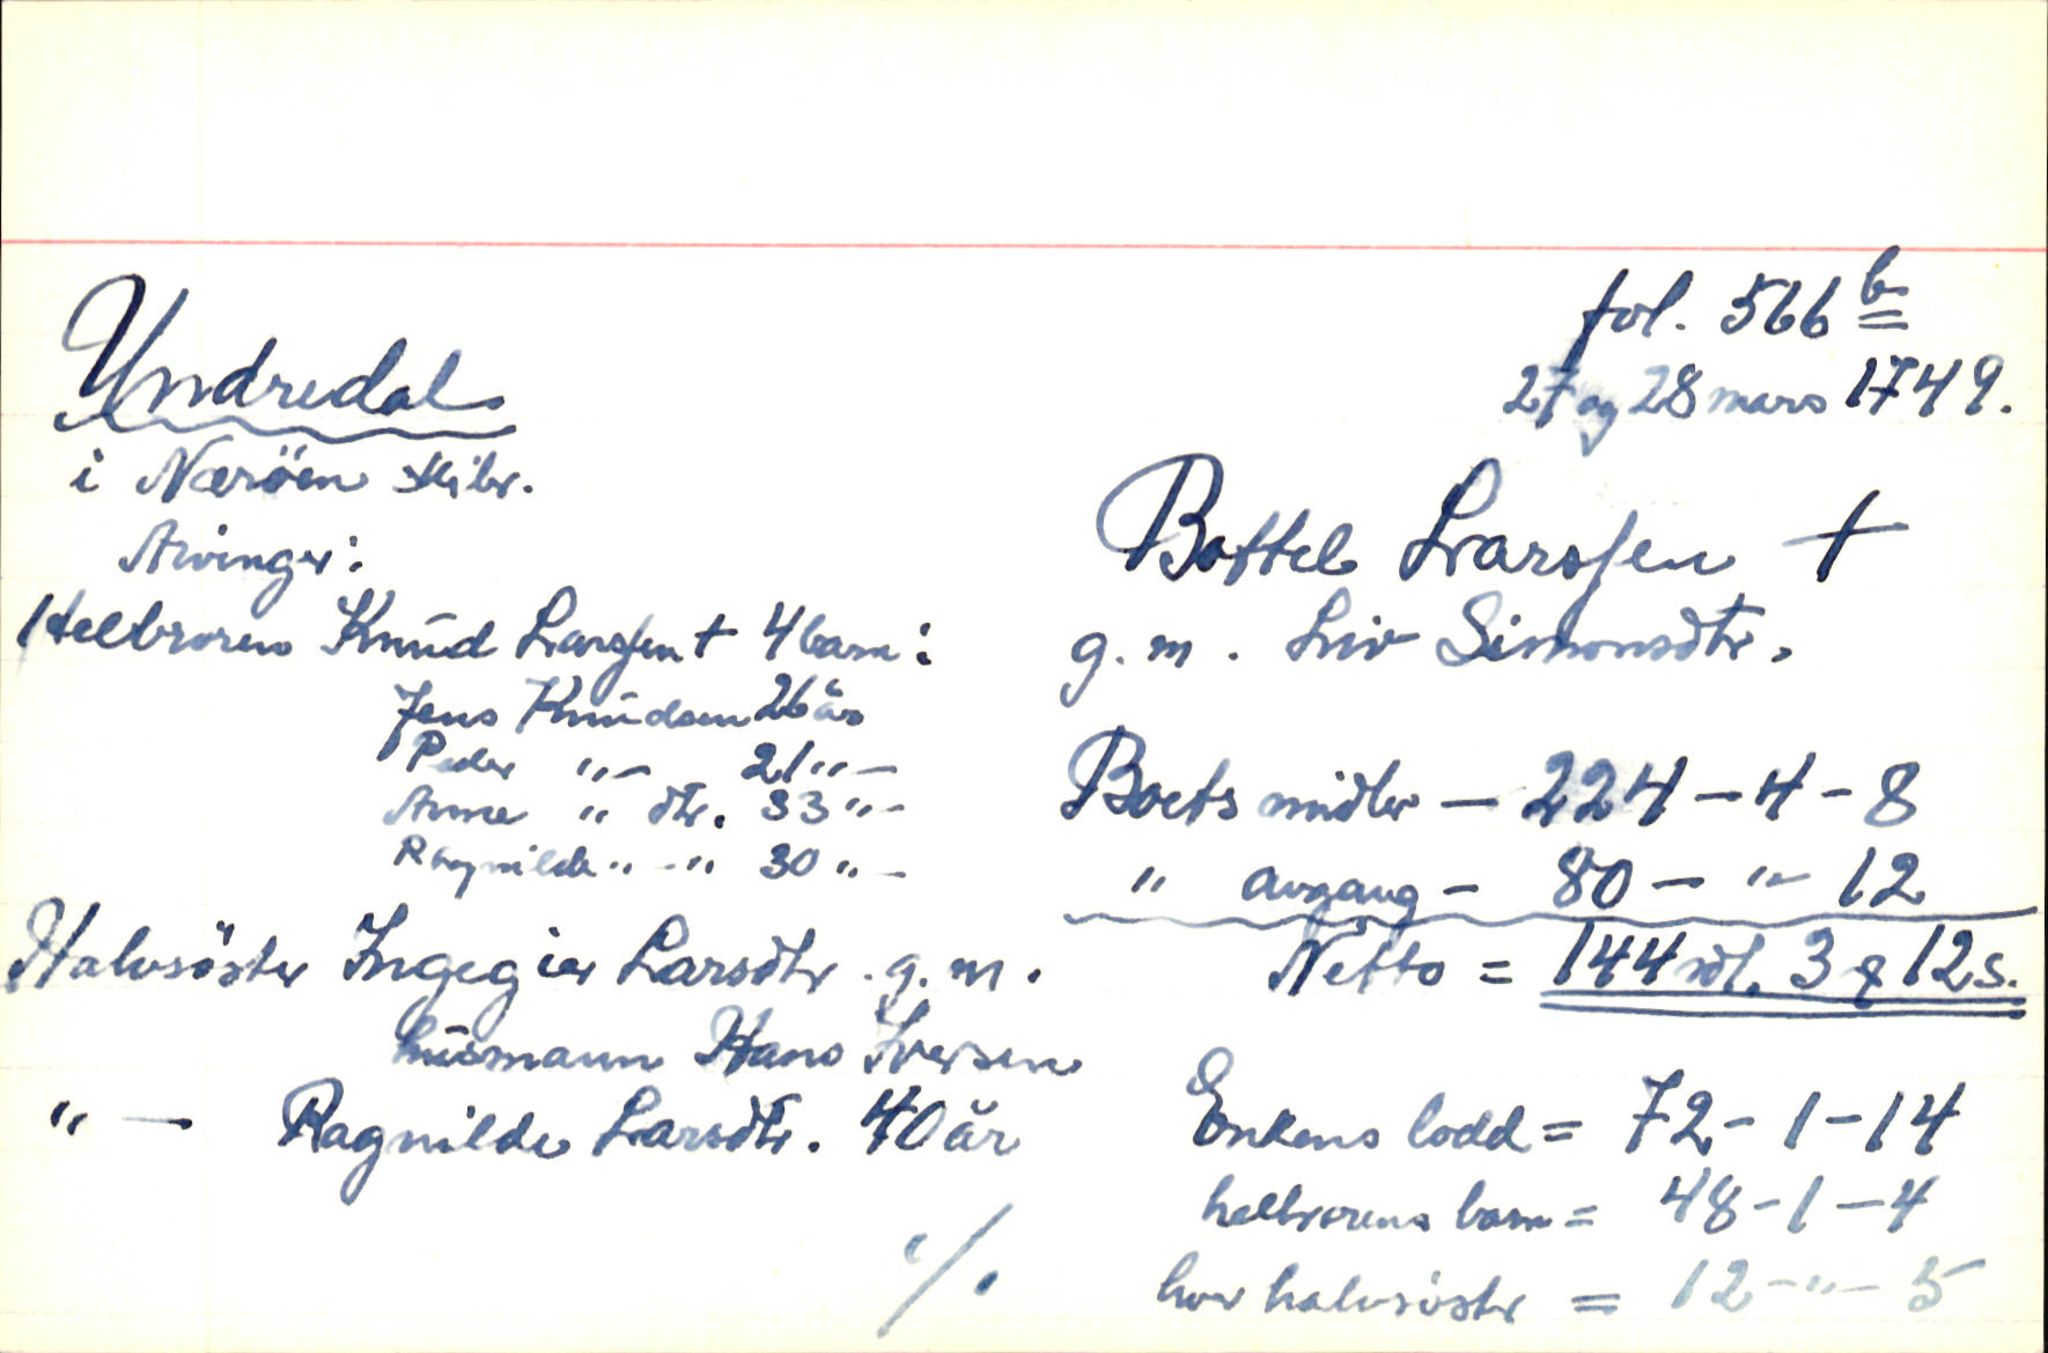 fol. 566 b
27 og 28 mars 1749.
Undredal
i Næröen skibr.
Arvinger:
Helbroren Knud Larssen † 4 barn:
Jens Knudsen 26 år
Peder "– 21 "–
Anna " dtr. 33 "–
Ragnilde " –" 30 "–
Halvsöster Ingegier Larsdtr. g. m.
husmann Hans Iversen
" – Ragnilde Larsdtr. 40 år
·/·
Bottel Larssen †
g. m. Liv Simonsdtr.
Boets midler – 224 – 4 – 8
" avgang – 80 – " – 12
Netto = 144 rdl. 3 ƍ 12 s.
Enkens lodd = 72 – 1 – 14
helbrorens barn = 48 – 1 – 4
hver halvsöster = 12 – " – 5